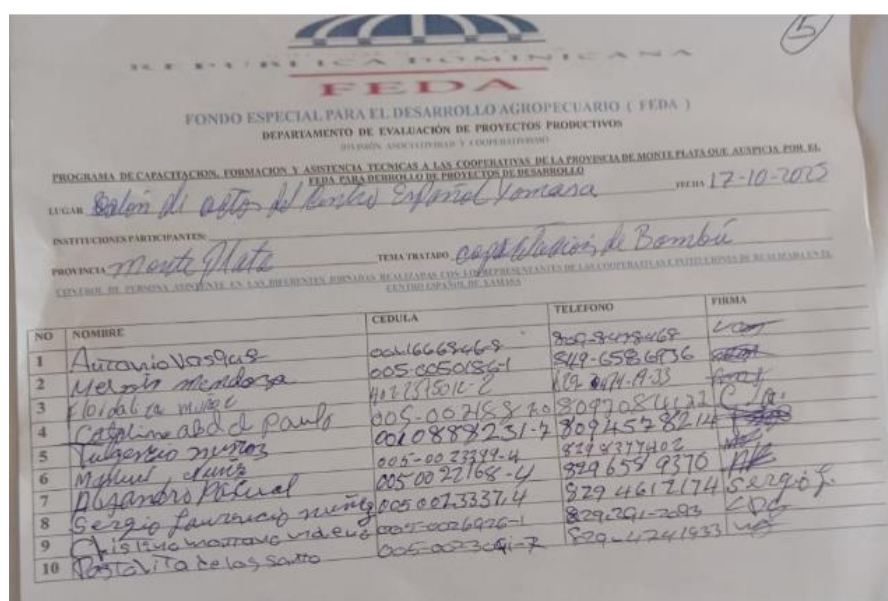 5
REPUBLICA DOMINICANA
FEDA
FONDO ESPECIAL PARA EL DESARROLLO AGROPECUARIO ( FEDA )
DEPARTAMENTO DE EVALUACIÓN DE PROVECTOS PRODUCTIVOS
DIVISIÓN ASOCIATIVIDAD Y COOPERATIVISMO
PROGRAMA DE CAPACITACION, FORMACION Y ASISTENCIA TECNICAS A LAS COOPERATIVAS DE LA PROVINCIA DE MONTE PLATA QUE AUSPICIA POR EL
FEDA PARA DEBROLLO DE PROYECTOS DE DESARROLLO
LUGAR Salón de actos del Centro Español Yamasa FECHA 17-10-2025
INSTITUCIONES PARTICIPANTES:
PROVINCIA Monte Plata TEMA TRATADO de Bambú
CONTROL DE PERSONA ASISTENTE EN LAS DIFERENTES JORNADAS REALIZADAS CON LOS REPRESENTANTES DE LAS COOPERATIVAS E INSTITUCIONES DE REALIZADA EN EL
CENTRO ESPAÑOL DE YAMASA
NO NOMBRE CEDULA TELEFONO FIRMA
1 Antonio Vasques 809-8478468
2 Mendoza 005-0050186-1 849-6586936
3
4 Catalina abad de Paulo 8097084122
5 Fulgencio nuñoz 0010888231-7 8094578214
6 Manuel Nuñz 005-0023349-4 8298377402
7 Alejandro Pascual 0050022168-4 8296589370
8 Sergio Laurencio nuñez 0050023337-4 8294612174 Sergio L.
9 005-0026926-1 829-291-2093
10 de los Santo 829-4241933